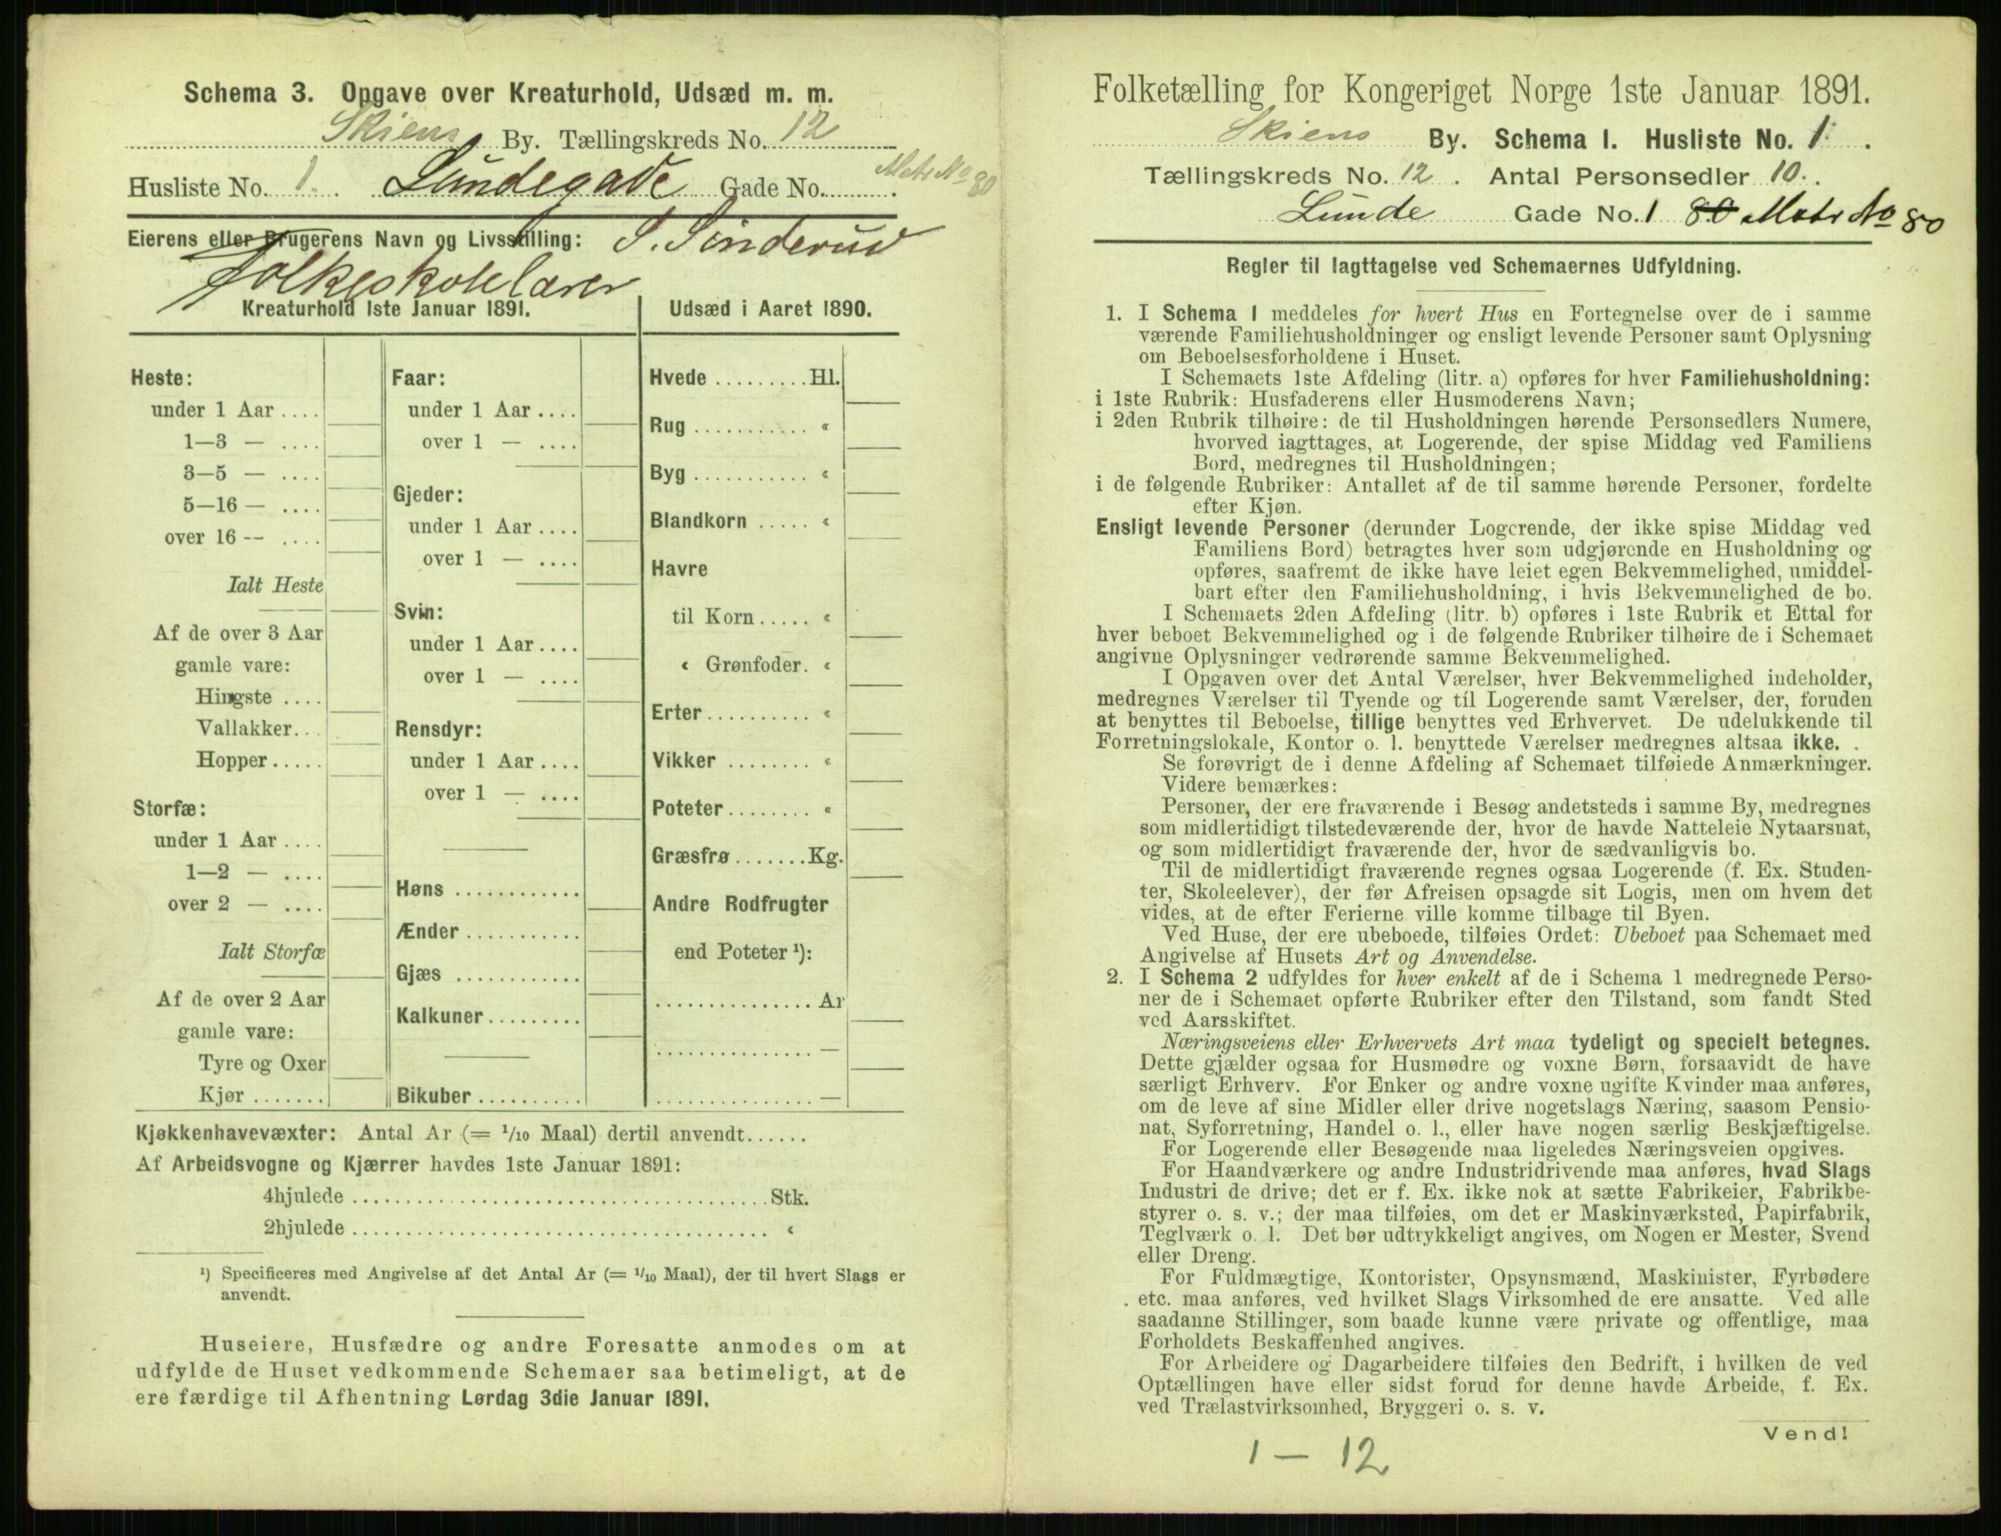 Schema 3. Opgave over Kreaturhold, Udsæd m. m.
Skiens By. Tællingskreds No. 12
Husliste No. 1. Lundegade Gade No. Matr No 80
Eierens eller Brugerens Navn og Livsstilling: S. Sinderud
Folkeskolelærer
Kreaturhold 1ste Januar 1891.
Udsæd i Aaret 1890.
Heste:
under 1 Aar ....
1—3 — ....
3—5 — ....
5—16 — ....
over 16 -- ....
Ialt Heste
Af de over 3 Aar
gamle vare:
Hingste ....
Vallakker...
Hopper.....
Storfæ:
under 1 Aar ....
1—2 — ....
over 2 — ....
Ialt Storfæ
Af de over 2 Aar
gamle vare:
Tyre og Oxer
Kjør .......
Faar:
under 1 Aar ....
over 1 — ....
Gjeder:
under 1 Aar ....
over 1 — ....
Svin:
under 1 Aar ....
over 1 — ....
Rensdyr:
under 1 Aar ....
over 1 — ....
Høns ............
Ænder ...........
Gjæs ............
Kalkuner.........
Bikuber ..........
Hvede .........Hl.
Rug ........... «
Byg ........... «
Blandkorn ..... «
Havre
til Korn ..... «
« Grønfoder. «
Erter.......... «
Vikker ........ «
Poteter........ «
Græsfrø .......Kg.
Andre Rodfrugter
end Poteter ¹):
...............Ar
............... —
............... —
Kjøkkenhavevæxter: Antal Ar (= 1/10 Maal) dertil anvendt......
Af Arbeidsvogne og Kjærrer havdes 1ste Januar 1891:
4hjulede ........................................Stk.
2hjulede ........................................ «
¹) Specificeres med Angivelse af det Antal Ar (= 1/10 Maal), der til hvert Slags er
anvendt.
Huseiere, Husfædre og andre Foresatte anmodes om at
udfylde de Huset vedkommende Schemaer saa betimeligt, at de
ere færdige til Afhentning Lørdag 3die Januar 1891.
Folketælling for Kongeriget Norge 1ste Januar 1891.
Skiens By. Schema I. Husliste No. 1.
Tællingskreds No. 12. Antal Personsedler 10.
Lunde Gade No. 1 80 Matr No 80
Regler til Iagttagelse ved Schemaernes Udfyldning.
1. I Schema I meddeles for hvert Hus en Fortegnelse over de i samme
værende Familiehusholdninger og ensligt levende Personer samt Oplysning
om Beboelsesforholdene i Huset.
I Schemaets 1ste Afdeling (litr. a) opføres for hver Familiehusholdning:
i 1ste Rubrik: Husfaderens eller Husmoderens Navn;
i 2den Rubrik tilhøire: de til Husholdningen hørende Personsedlers Numere,
hvorved iagttages, at Logerende, der spise Middag ved Familiens
Bord, medregnes til Husholdningen;
i de følgende Rubriker: Antallet af de til samme hørende Personer, fordelte
efter Kjøn.
Ensligt levende Personer (derunder Logerende, der ikke spise Middag ved
Familiens Bord) betragtes hver som udgjørende en Husholdning og
opføres, saafremt de ikke have leiet egen Bekvemmelighed, umiddel-
bart efter den Familiehusholdning, i hvis Bekvemmelighed de bo.
I Schemaets 2den Afdeling (litr. b) opføres i 1ste Rubrik et Ettal for
hver beboet Bekvemmelighed og i de følgende Rubriker tilhøire de i Schemaet
angivne Oplysninger vedrørende samme Bekvemmelighed.
I Opgaven over det Antal Værelser, hver Bekvemmelighed indeholder,
medregnes Værelser til Tyende og til Logerende samt Værelser, der, foruden
at benyttes til Beboelse, tillige benyttes ved Erhvervet. De udelukkende til
Forretningslokale, Kontor o. l. benyttede Værelser medregnes altsaa ikke.
Se forøvrigt de i denne Afdeling af Schemaet tilføiede Anmærkninger.
Videre bemærkes:
Personer, der ere fraværende i Besøg andetsteds i samme By, medregnes
som midlertidigt tilstedeværende der, hvor de havde Natteleie Nytaarsnat,
og som midlertidigt fraværende der, hvor de sædvanligvis bo.
Til de midlertidigt fraværende regnes ogsaa Logerende (f. Ex. Studen-
ter, Skoleelever), der før Afreisen opsagde sit Logis, men om hvem det
vides, at de efter Ferierne ville komme tilbage til Byen.
Ved Huse, der ere ubeboede, tilføies Ordet: Ubeboet paa Schemaet med
Angivelse af Husets Art og Anvendelse.
2. I Schema 2 udfyldes for hver enkelt af de i Schema 1 medregnede Perso-
ner de i Schemaet opførte Rubriker efter den Tilstand, som fandt Sted
ved Aarsskiftet.
Næringsveiens eller Erhvervets Art maa tydeligt og specielt betegnes.
Dette gjælder ogsaa for Husmødre og voxne Børn, forsaavidt de have
særligt Erhverv. For Enker og andre voxne ugifte Kvinder maa anføres,
om de leve af sine Midler eller drive nogetslags Næring, saasom Pensio-
nat, Syforretning, Handel o. l., eller have nogen særlig Beskjæftigelse.
For Logerende eller Besøgende maa ligeledes Næringsveien opgives.
For Haandværkere og andre Industridrivende maa anføres, hvad Slags
Industri de drive; det er f. Ex. ikke nok at sætte Fabrikeier, Fabrikbe-
styrer o. s. v.; der maa tilføies, om det er Maskinværksted, Papirfabrik,
Teglværk o. l. Det bør udtrykkeligt angives, om Nogen er Mester, Svend
eller Dreng.
For Fuldmægtige, Kontorister, Opsynsmænd, Maskinister, Fyrbødere
etc. maa anføres, ved hvilket Slags Virksomhed de ere ansatte. Ved alle
saadanne Stillinger, som baade kunne være private og offentlige, maa
Forholdets Beskaffenhed angives.
For Arbeidere og Dagarbeidere tilføies den Bedrift, i hvilken de ved
Optællingen have eller sidst forud for denne havde Arbeide, f. Ex.
ved Trælastvirksomhed, Bryggeri o. s. v.
Vend!
1 — 12